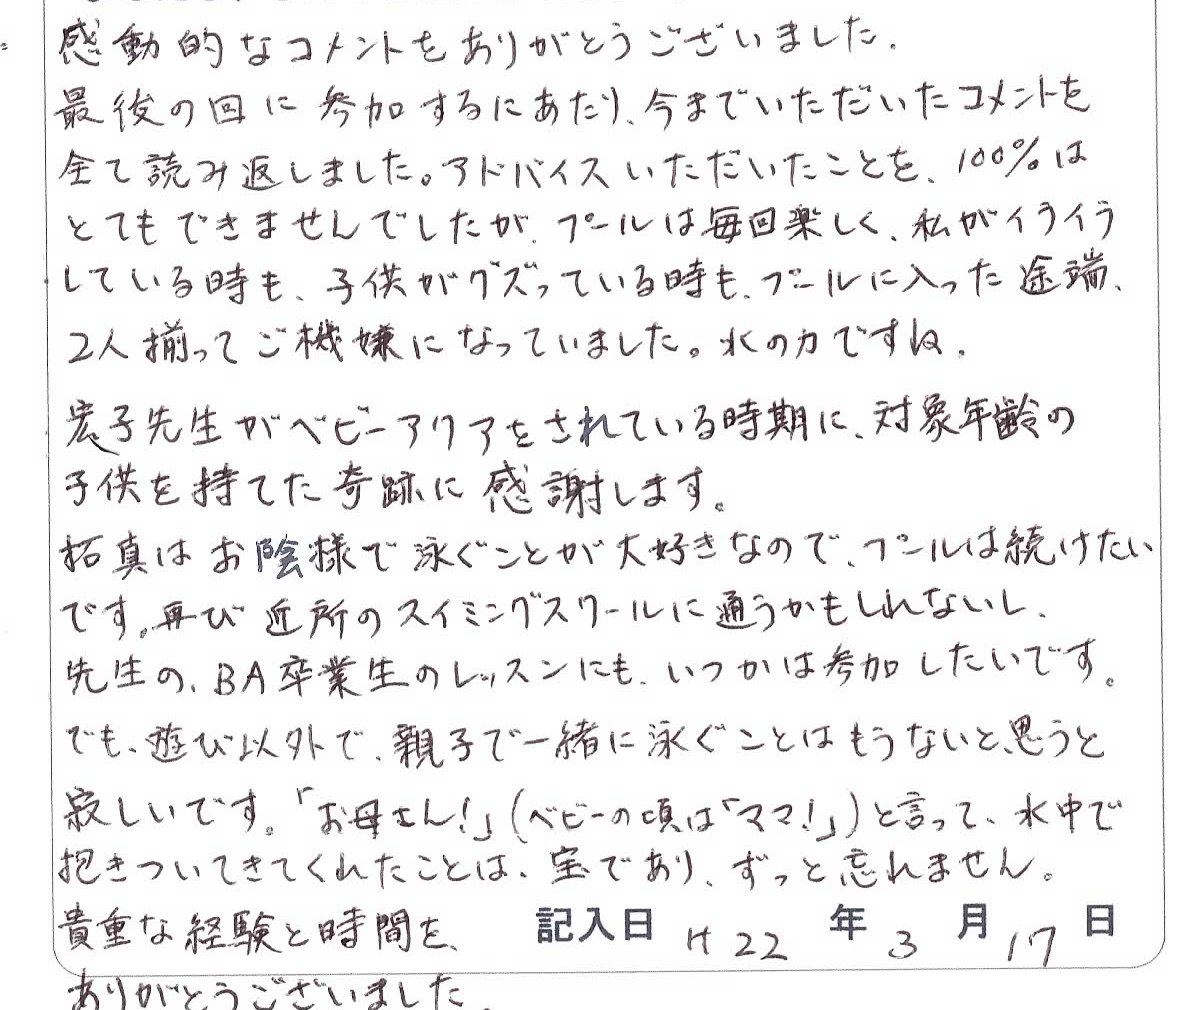 感動的なコメントをありがとうございました。
最後の回に参加するにあたり、今までいただいたコメントを
全て読み返しました。アドバイスいただいたことを、100%は
とてもできませんでしたが、プールは毎回楽しく、私がイライラ
している時も、子供がグズっている時も、プールに入った途端、
2人揃ってご機嫌になっていました。水の力ですね。
宏子先生がベビーアクアをされている時期に、対象年齢の
子供を持てた奇跡に感謝します。
拓真はお陰様で泳ぐことが大好きなので、プールは続けたい
です。再び近所のスイミングスクールに通うかもしれないし、
先生の、BA卒業生のレッスンにも、いつかは参加したいです。
でも、遊び以外で、親子で一緒に泳ぐことはもうないと、思うと
寂しいです。「お母さん!」(ベビーの頃は「ママ!」)と言って、水中で
抱きついてきてくれたことは、宝であり、ずっと忘れません。
貴重な経験と時間を、
ありがとうございました。
記入日 H22 年 3 月 17 日